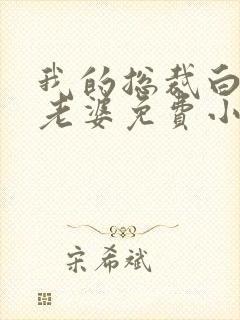 我的总裁白
老婆免费小
宋希斌